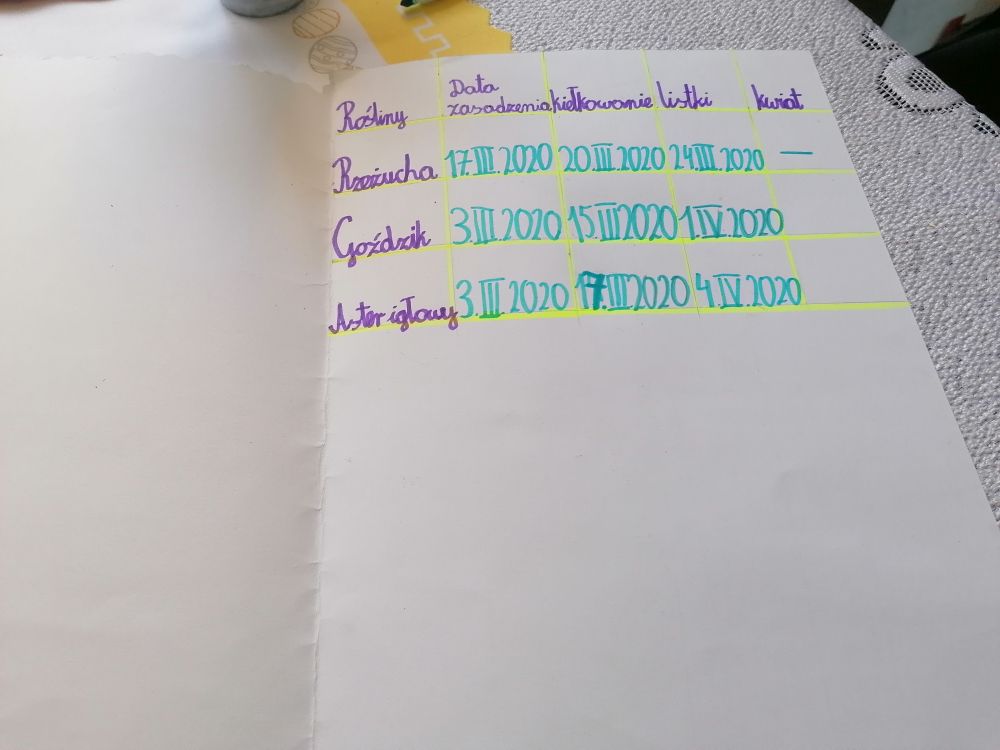 Rośliny Data zasadzenia kiełkowanie listki kwiat
Rzeżucha 17.III.2020 20.III.2020 24.III.2020 —
Goździk 3.III.2020 15.III2020 1.IV.2020
Aster igłowy 3.III.2020 17.III2020 4.IV.2020